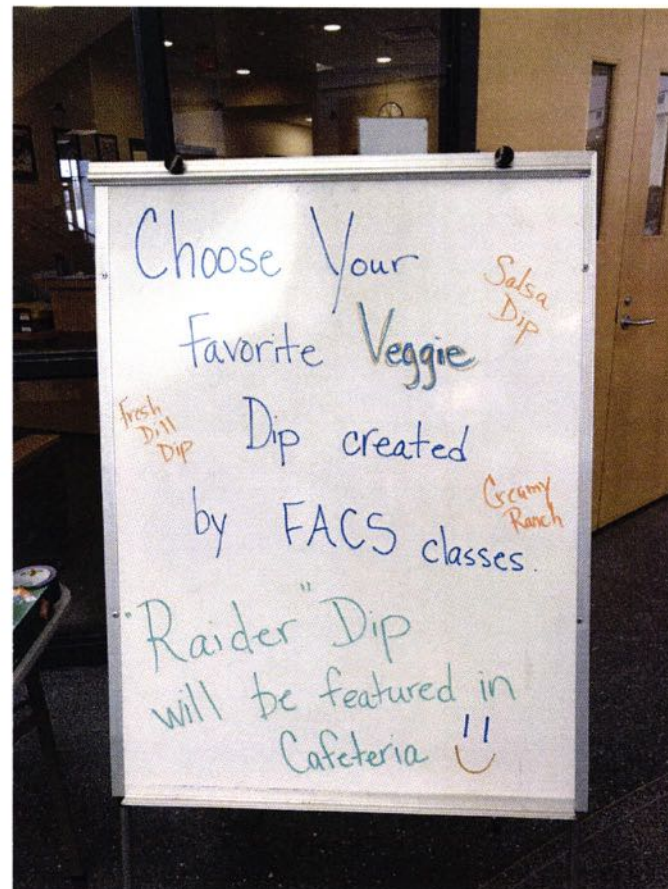 Choose Your
Favorite Veggie
Dip created
by FACS classes.
Salsa
Dip
Fresh
Dill
Dip
Creamy
Ranch
"Raider" Dip
will be featured in
Cafeteria